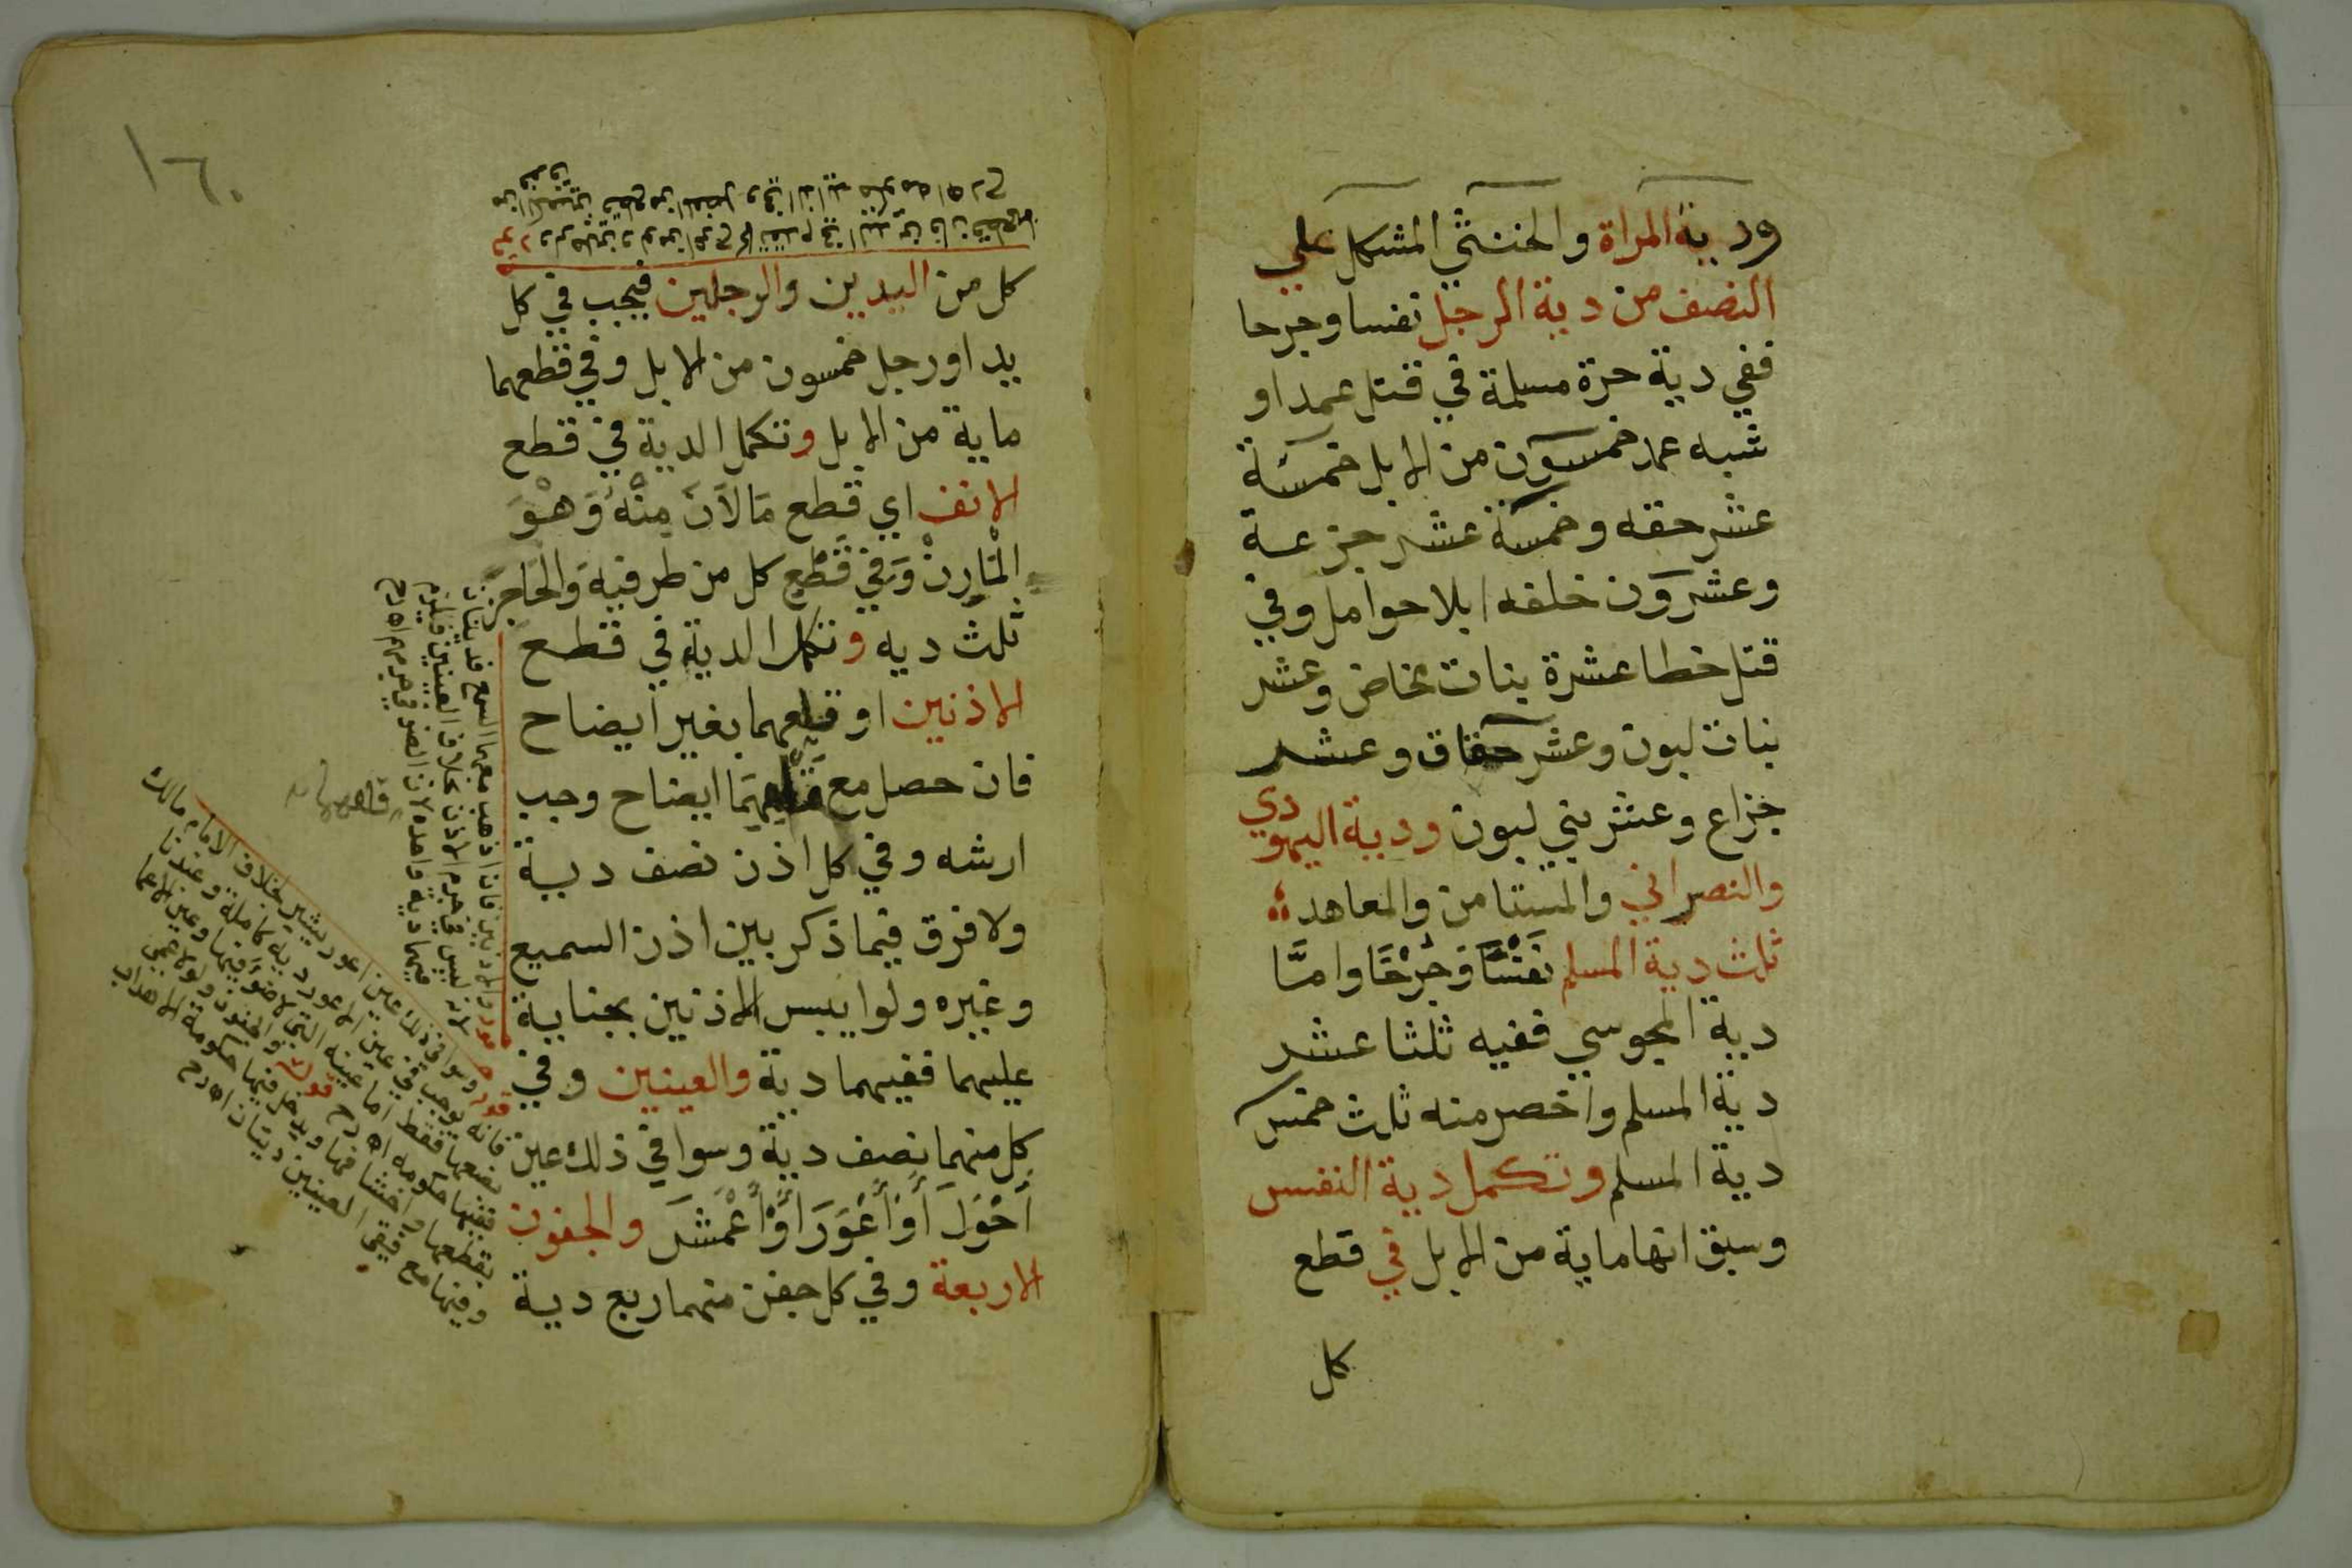 ودية المراة والخنثي المشكل علي
النصف من دية الرجل نفسا وجرحا
ففي دية حرة مسلمة في قتل عمد او
شبه عمد خمسون من الابل خمسة
عشر حقه وخمسة عشر جزعة
وعشرون خلفه ابلا حوامل وفي
قتل خطا عشرة بنات مخاض وعشر
بنات لبون وعشر حقاق وعشر
جزاع وعشر بني لبون ودية اليهودي
والنصراني والمستامن والمعاهد
ثلث دية المسلم نَفْسًا وَجُرْحًا وامَّا
دية المجوسي ففيه ثلثا عشر
دية المسلم واخصر منه ثلث خمس
دية المسلم وتكمل دية النفس
وسبق انها ماية من الابل في قطع
كل
١٦٠
كل من اليدين والرجلين فيجب في كل
يد او رجل خمسون من الابل وفي قطعهما
ماية من الابل وتكمل الدية في قطع
الانف اي قطع مَا لَانَ مِنْهُ وَهْوَ
الْمَارِنْ وَفِي قَطْعِ كل من طرفيه وَالحَاجز
ثلث ديه وتكمل الدية في قطع
الاذنين او قلعهما بغير ايضاح
فان حصل مع قلعهمَا ايضاح وجب
ارشه وفي كل اذن نصف دية
ولا فرق فيما ذكر بين اذن السميع
وغيره ولو ايبس الاذنين بجناية
عليهما ففيهما دية والعينين وفي
كل منهما نصف دية وسوا في ذلك عين
أَحْوَلَ أَوْ أَعْوَرَ أَوْ أَعْمَشَ والجفون
الاربعة وفي كل جفن منهما ربع دية
والاذنين فان اذهب معهما السمع فديتان
لانه ليس في جرم الاذن بخلاف العينين فيلزم
فيهما دية واحده لان الضو في جرمهم اه رح
قوله وسوا في ذلك عين اعور يشير بخلاف الامام مالك
فانه يوجب في عين الاعور دية كاملة وعندنا
نصفها فقط اما عينه التي لا ضوَ فيها وعين الاعما
ففيها حكومه اه رح قوله والجفون ولو لاعمى
بقطعها و فيها ويدخل فيها حكومة الاهداب
وفيها مع فقي العينين ديتان اه رح